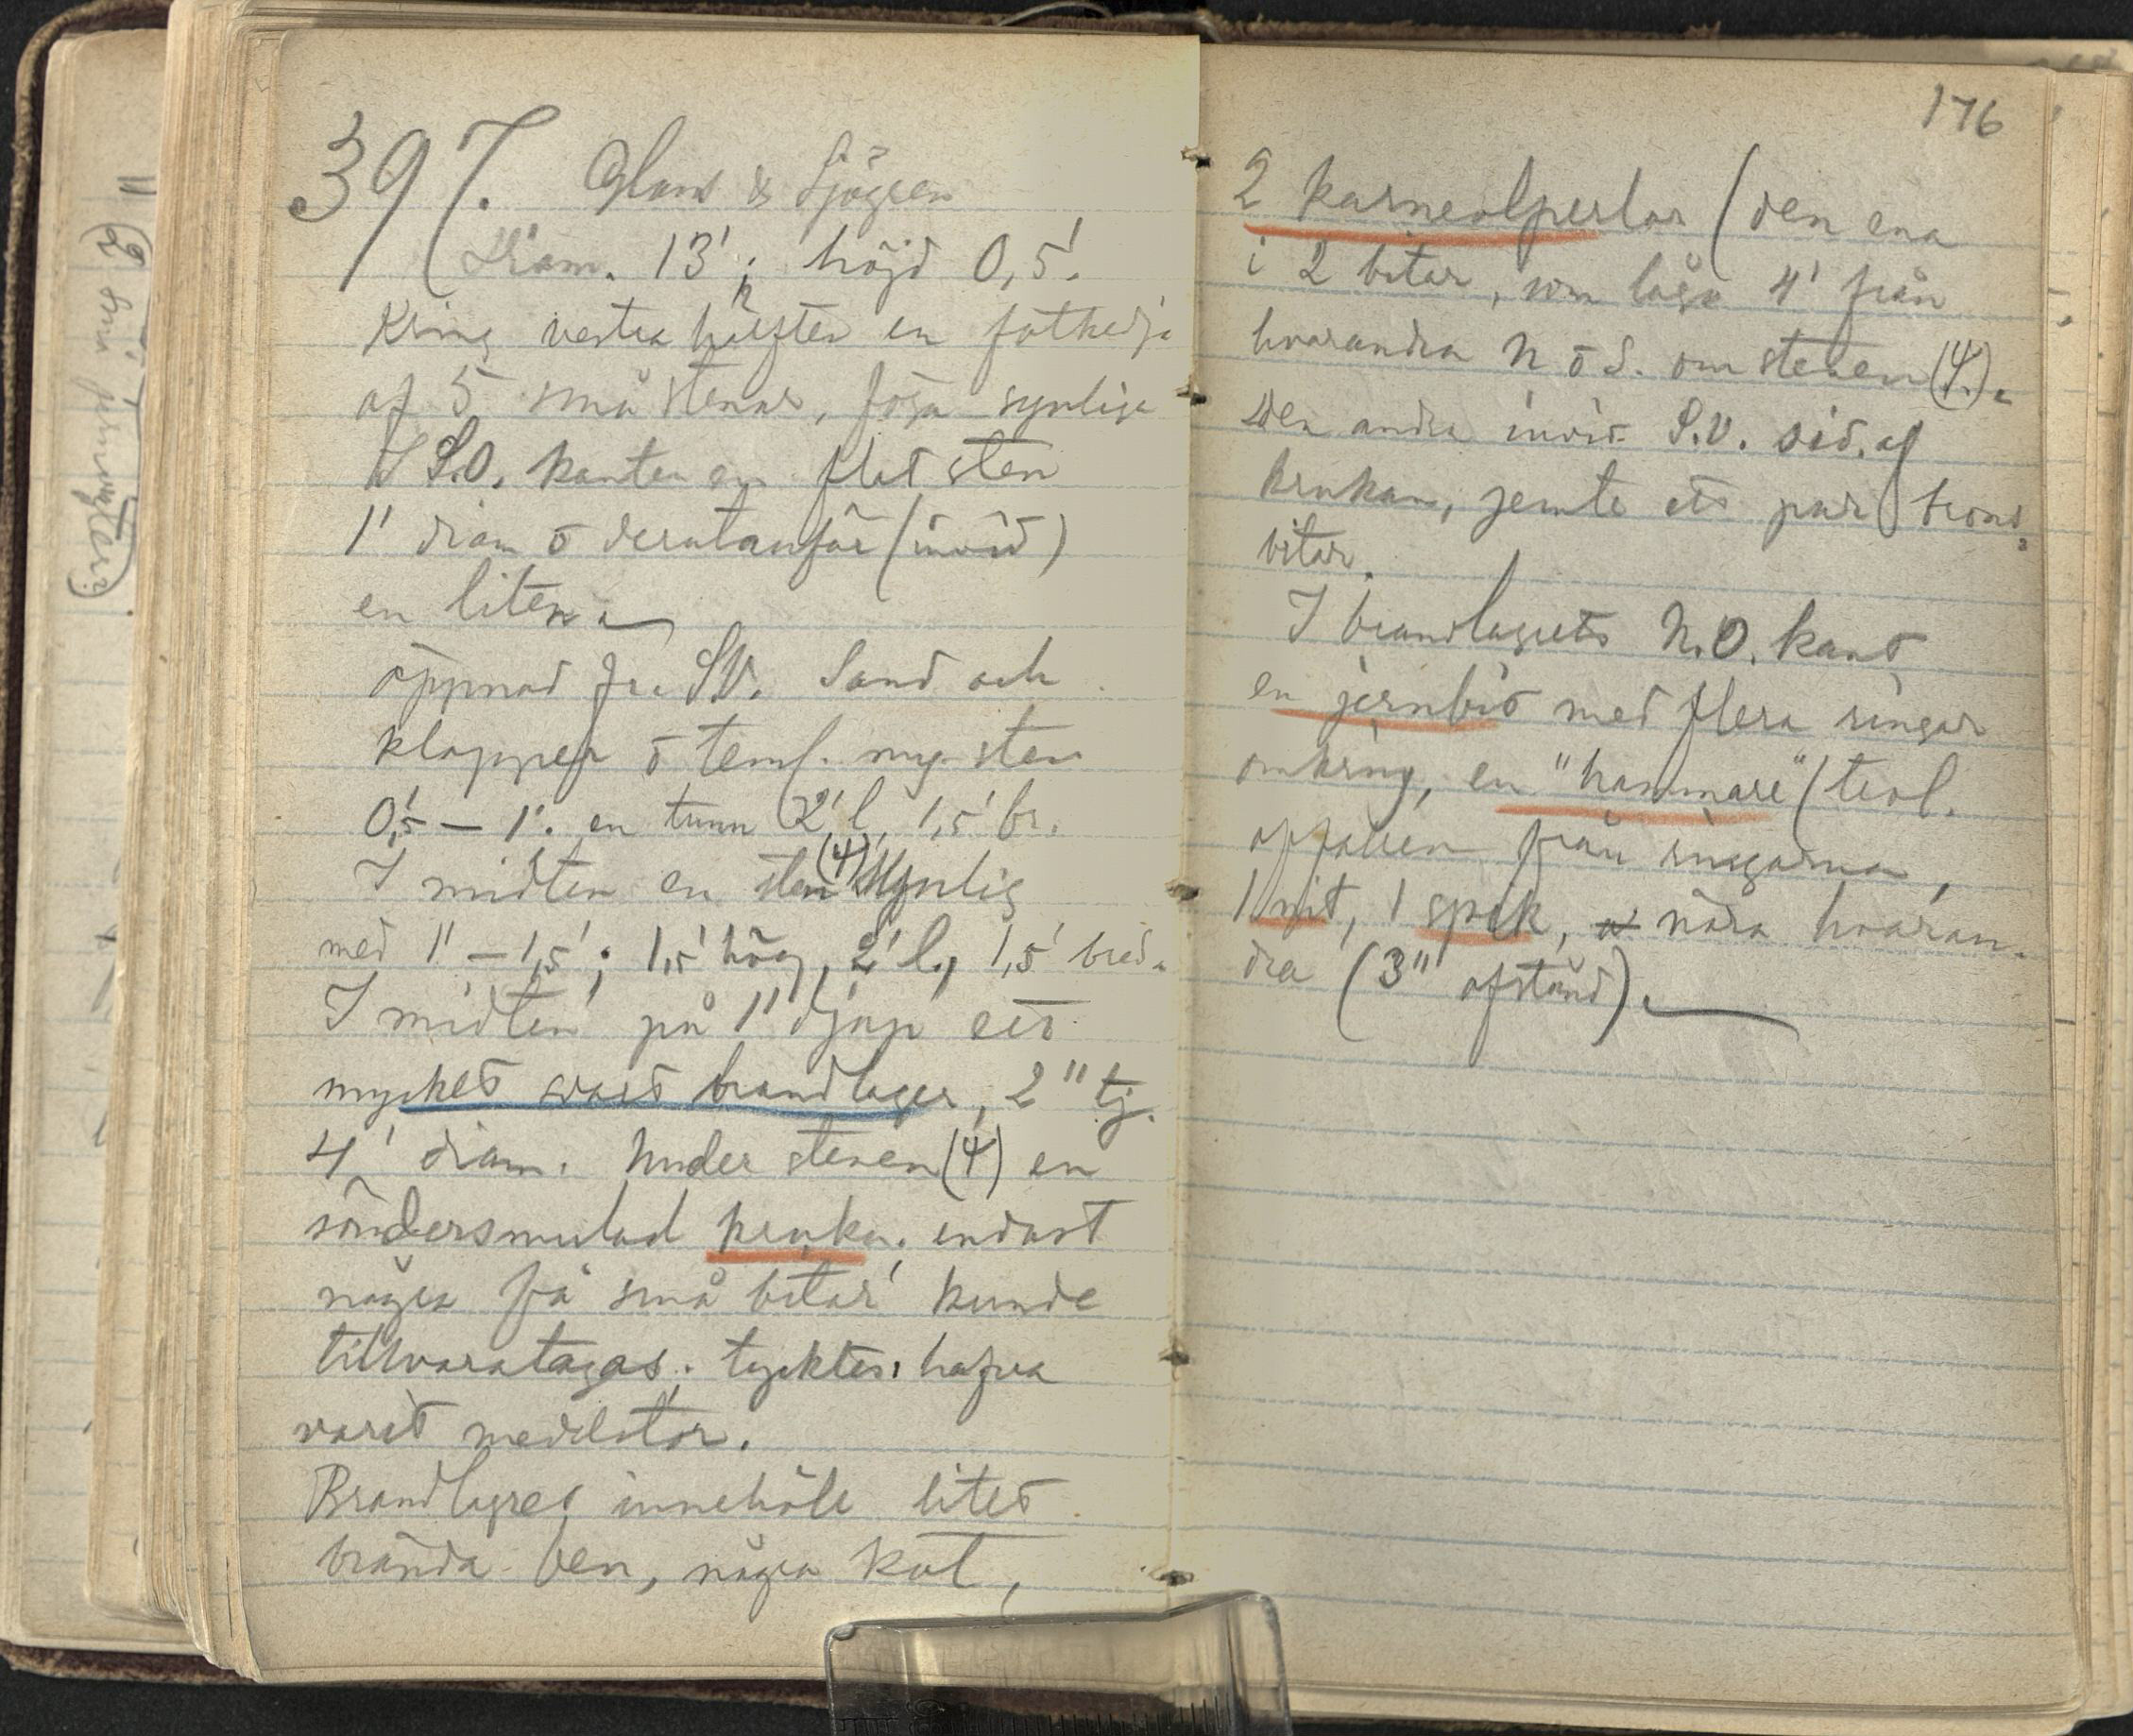 397. Glans & Sjögren
Diam. 13'; höjd 0,5'.
Kring vestra hälften en fotkedja
af 5 små stenar, föga synliga
I S.O. kanten en flat sten
1' diam o derutanför (invid)
en liten.
öppnad fr. S.V. Sand och
klapper o teml. myc. sten
0,5' – 1'. en tunn 2' l, 1,5' br.
I midten en sten (4) synlig
med 1' – 1,5'; 1,5' hög, 2' l., 1,5' bred.
I midten på 1' djup ett
mycket svart brandlager, 2" tj.
4' diam. Under stenen (4) en
söndersmulad kruka, endast
några få små bitar kunde
tillvaratagas; tycktes hafva
varit medelstor.
Brandlagret innehöll litet
brända ben, några kol,
176
2 karneolperlor (den ena
i 2 bitar, som lågo 4' från
hvarandra N o S. om stenen (4).
Den andra invid S.V. sid. af
krukan, jemte ett par brons-
bitar.
I brandlagrets N.O. kant
en jernbit med flera ringar
omkring, en "hammare" (trol.
affallen från ringarna,
1 nit, 1 spik, nära hvaran-
dra (3" afstånd).
11
(2 små jernnyglar?)